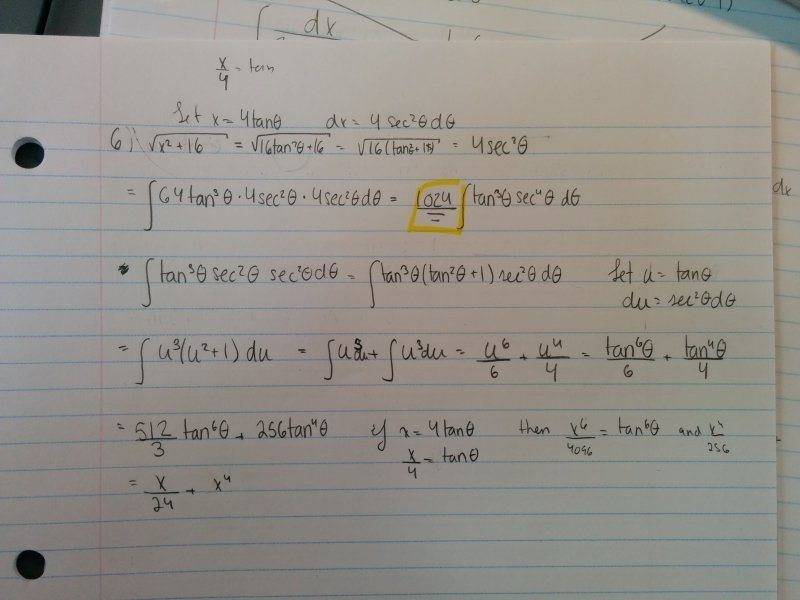 dx
x/4 = tan
Let x = 4tanθ dx = 4 sec²θ dθ
6) √(x² + 16) = √(16tan²θ + 16) = √(16(tan²θ + 1)) = 4sec²θ
= ∫ 64tan³θ · 4sec²θ · 4sec²θ dθ = 1024 ∫ tan³θ sec⁴θ dθ
dx
* ∫ tan³θ sec²θ sec²θ dθ = ∫ tan³θ (tan²θ + 1) sec²θ dθ Let u = tanθ
du = sec²θ dθ
= ∫ u³(u² + 1) du = ∫ u⁵ du + ∫ u³ du = u⁶/6 + u⁴/4 = tan⁶θ/6 + tan⁴θ/4
= 512/3 tan⁶θ + 256tan⁴θ if x = 4tanθ then x⁶/4096 = tan⁶θ and x⁴/256
x/4 = tanθ
= x/24 + x⁴